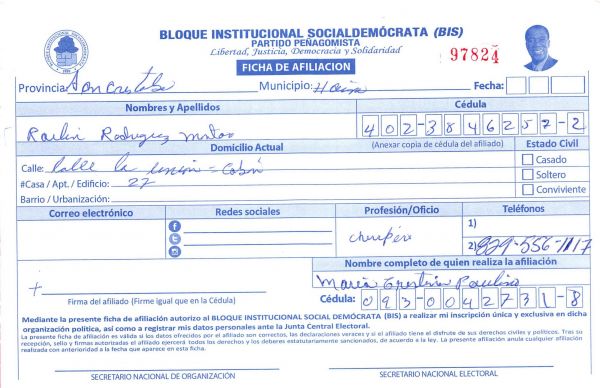 BLOQUE INSTITUCIONAL SOCIALDEMÓCRATA (BIS)
PARTIDO PEÑAGOMISTA
Libertad, Justicia, Democracia y Solidaridad
FICHA DE AFILIACION
97824
Provincia: San Cristobal Municipio: Haina Fecha:
Nombres y Apellidos Cédula
Raulin Rodriguez 402-3846257-2
Domicilio Actual (Anexar copia de cédula del afiliado) Estado Civil
Calle: Calle la union = Cabón Casado
#Casa / Apt. / Edificio: 27 Soltero
Barrio / Urbanización: Conviviente
Correo electrónico Redes sociales Profesión/Oficio Teléfonos
1)
chiripero 2) 829-556-1117
Nombre completo de quien realiza la afiliación
Maria Paulino
Firma del afiliado (Firme igual que en la Cédula) Cédula: 093-0042731-8
Mediante la presente ficha de afiliación autorizo al BLOQUE INSTITUCIONAL SOCIAL DEMÓCRATA (BIS) a realizar mi inscripción única y exclusiva en dicha
organización política, así como a registrar mis datos personales ante la Junta Central Electoral.
La presente afiliación es válida si los datos ofrecidos por el afiliado son correctos, las declaraciones veraces y si el afiliado tiene el disfrute de sus derechos civiles y políticos. Tras su
recepción, sello y firmas autorizadas el afiliado ejercerá todos los derechos y los deberes estatutariamente sancionados, de acuerdo a la ley. La presente afiliación anula cualquier afiliación
realizada con anterioridad a la fecha que aparece en esta ficha.
SECRETARIO NACIONAL DE ORGANIZACIÓN SECRETARIO NACIONAL ELECTORAL